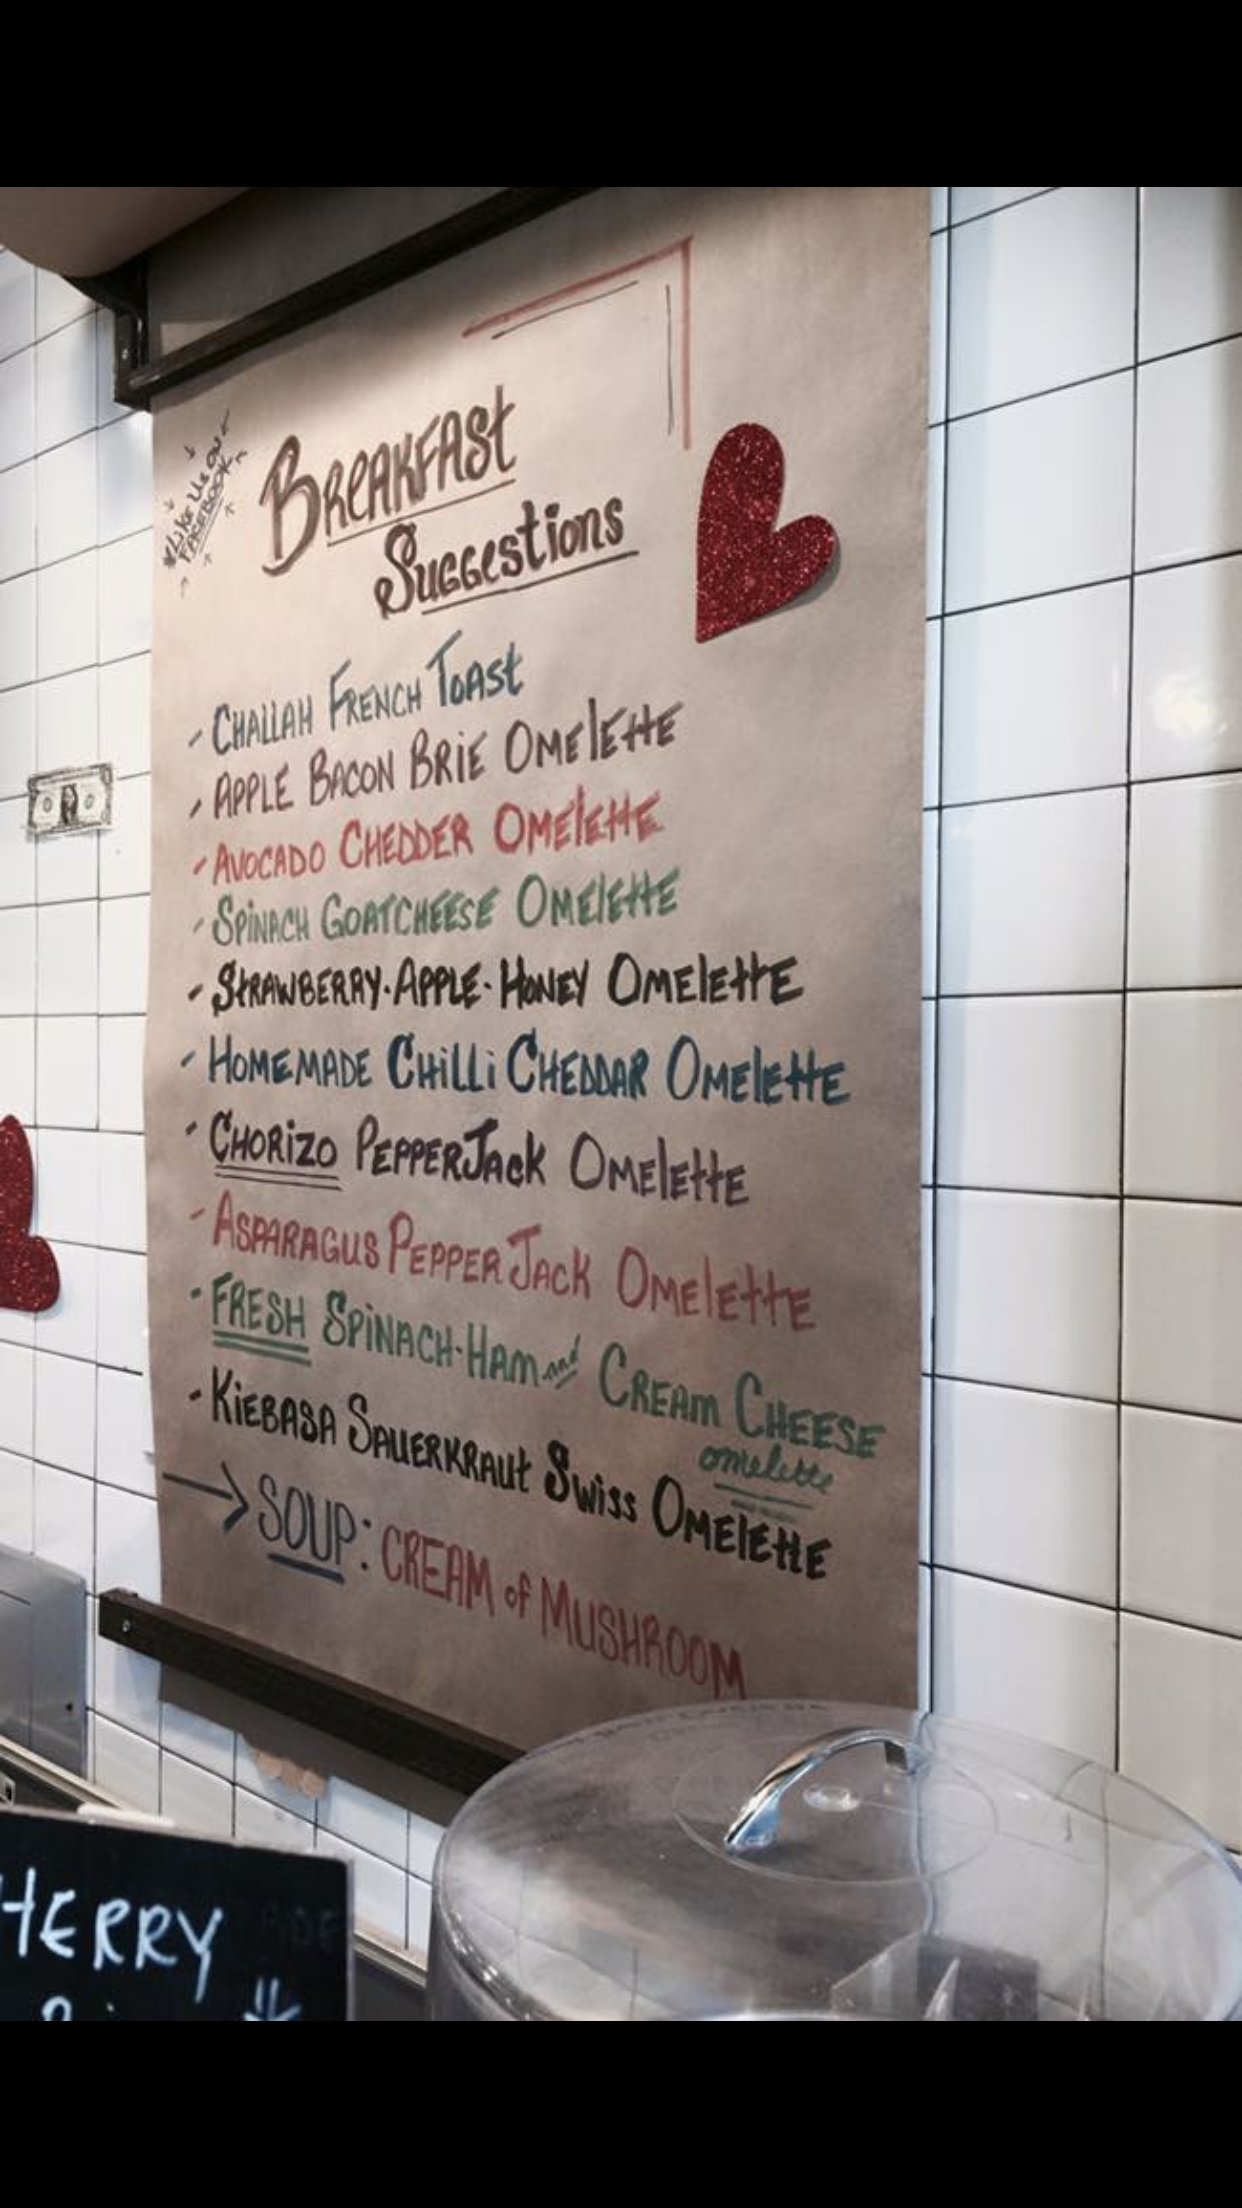 *Like Us on
FACEBOOK
BREAKFASt
SUGGEstions
- CHALLAH FRENCH TOASt
- APPLE BACON BRIE OMElEttE
- AVOCADO CHEDDER OMElEttE
- SPiNACH GOATCHEESE OMElEttE
- StRAWBERRY·APPLE·HONEY OMElEttE
- HOMEMADE CHiLLi CHEDDAR OMElEttE
- CHORiZO PEPPERJACK OMElEttE
- ASPARAGUS PEPPER JACK OMElEttE
- FRESH SPiNACH·HAM and CREAM CHEESE
omelette
- KiEBASA SAUERKRAUt SWiSS OMElEttE
→ SOUP: CREAM of MUSHROOM
HERRY